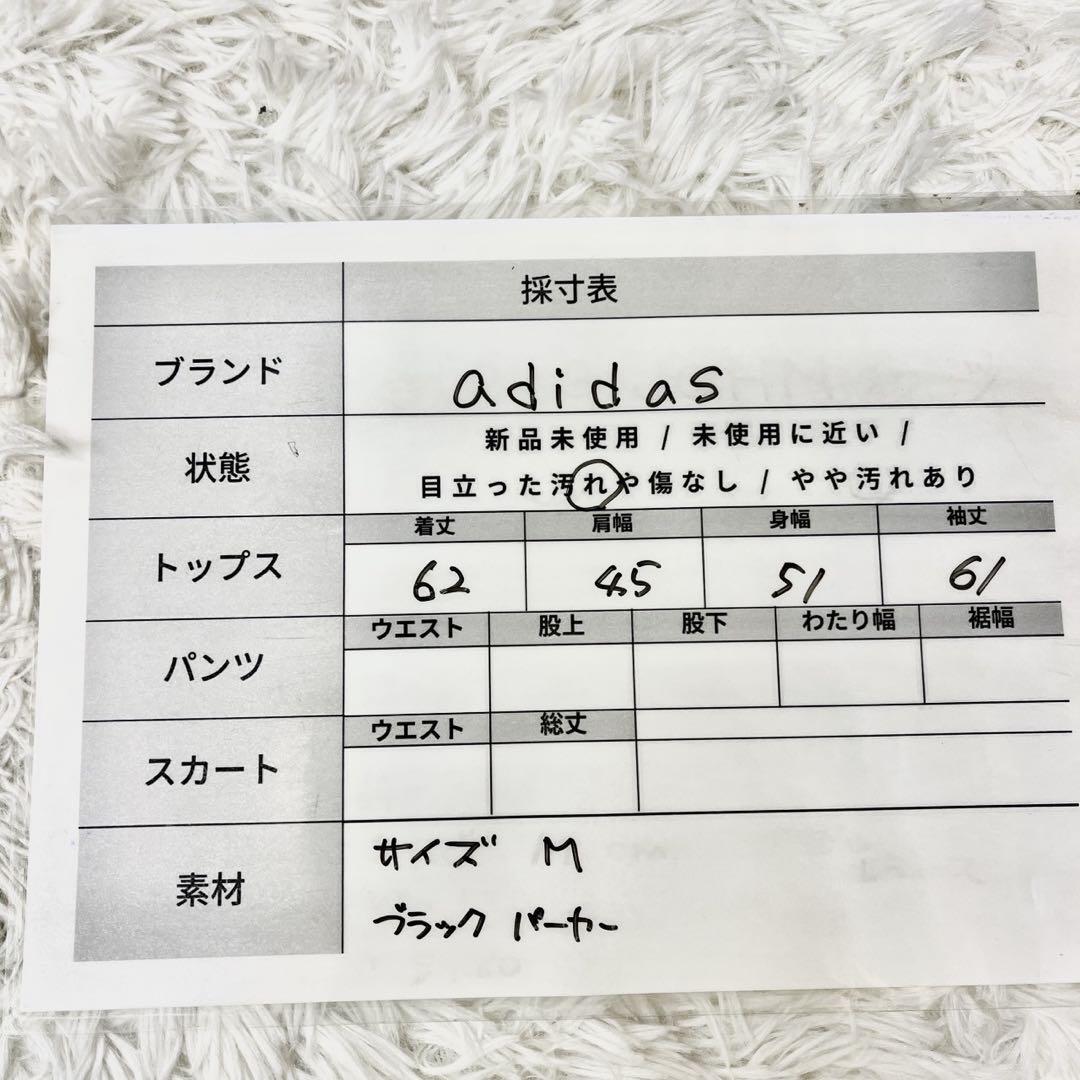 採寸表
ブランド
adidas
状態
新品未使用 / 未使用に近い /
目立った汚れや傷なし / やや汚れあり
トップス
着丈 肩幅 身幅 袖丈
62 45 51 61
パンツ
ウエスト 股上 股下 わたり幅 裾幅
スカート
ウエスト 総丈
素材
サイズ M
ブラック パーカー